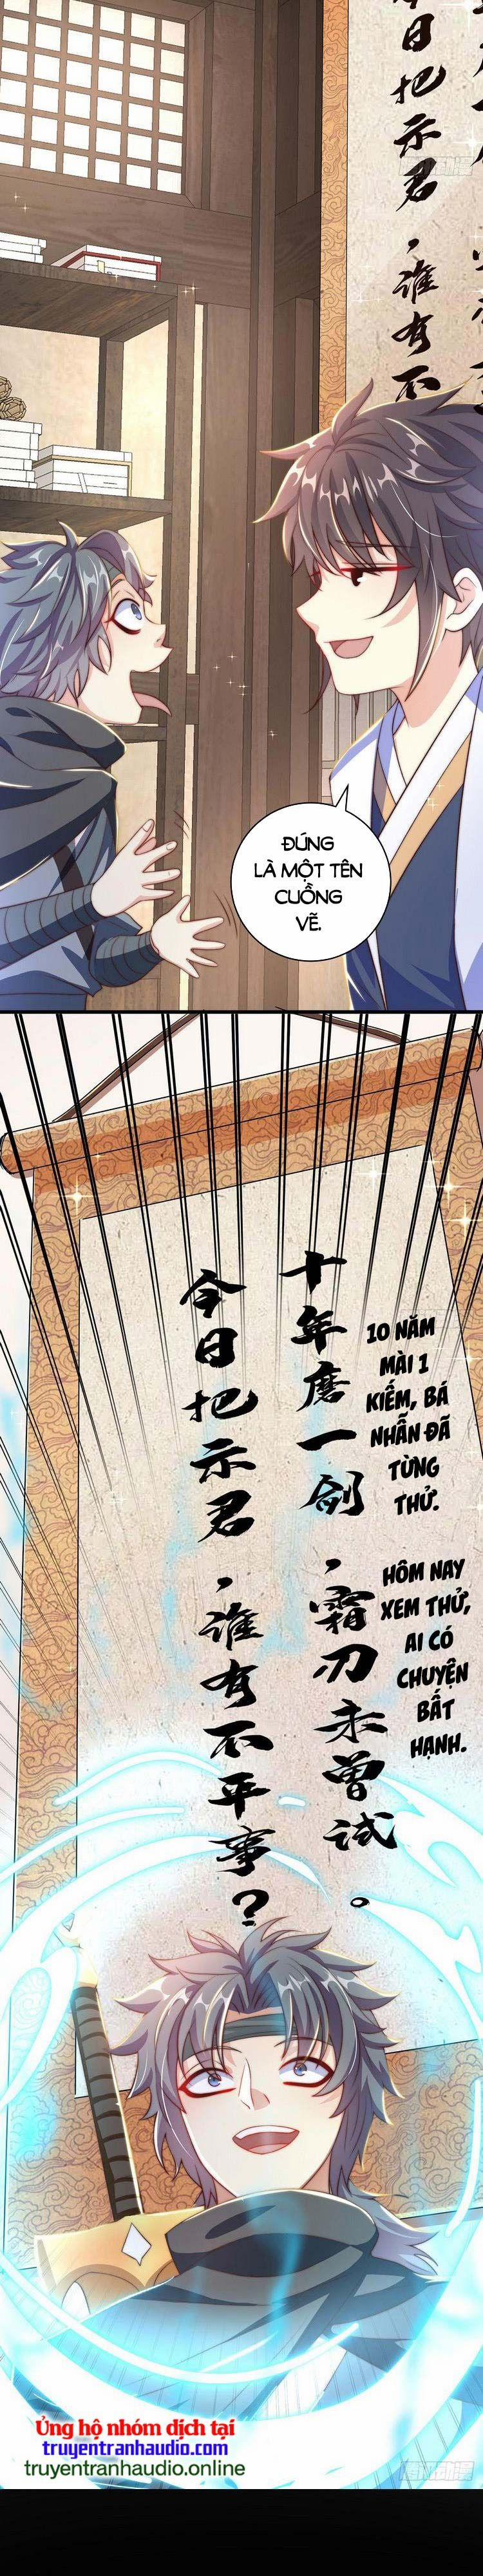 今日把示君，谁有不
ĐÚNG
LÀ MỘT TÊN
CUỒNG
VẼ.
十年磨一剑，霜刃未曾试。
今日把示君，谁有不平事？
10 NĂM
MÀI 1
KIẾM, BÁ
NHẪN ĐÃ
TỪNG
THỬ.
HÔM NAY
XEM THỬ,
AI CÓ
CHUYỆN
BẤT
HẠNH.
Ủng hộ nhóm dịch tại
truyentranhaudio.com
truyentranhaudio.online